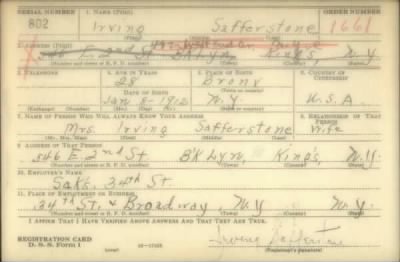 SERIAL NUMBER 1. NAME (Print) ORDER NUMBER
802 Irving Safferstone 1661
2. ADDRESS (Print)
546 E 2nd St BKLyn King's N.Y
(Number and street or R. F. D. number) (Town) (County) (State)
3. TELEPHONE 4. AGE IN YEARS 5. PLACE OF BIRTH 6. COUNTRY OF CITIZENSHIP
28 Bronx
DATE OF BIRTH
Jan 8-1912 N.Y. U.S.A.
(Exchange) (Number) (Mo.) (Day) (Yr.) (State or country)
7. NAME OF PERSON WHO WILL ALWAYS KNOW YOUR ADDRESS 8. RELATIONSHIP OF THAT PERSON
Mrs. Irving Safferstone Wife
(Mr., Mrs., Miss) (First) (Middle) (Last)
9. ADDRESS OF THAT PERSON
546 E. 2nd St B'KLyn, King's, N.Y.
(Number and street or R. F. D. number) (Town) (County) (State)
10. EMPLOYER'S NAME
SaKs. 34th St.
11. PLACE OF EMPLOYMENT OR BUSINESS
34th St. & Broadway, N.Y N.Y.
(Number and street or R. F. D. number) (Town) (County) (State)
I AFFIRM THAT I HAVE VERIFIED ABOVE ANSWERS AND THAT THEY ARE TRUE.
REGISTRATION CARD
D. S. S. Form 1 Irving Safferstone
(Registrant's signature)